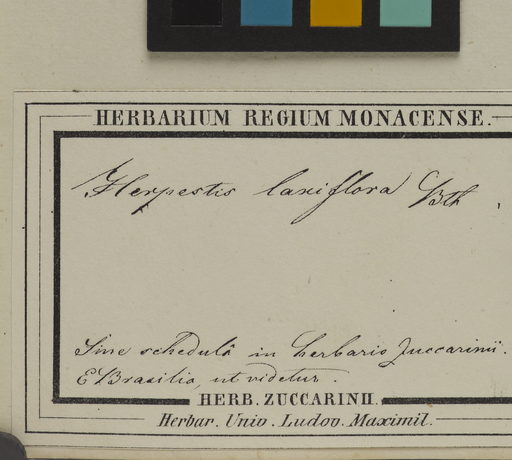 HERBARIUM REGIUM MONACENSE.
Herpestis laxiflora Bth
Sine schedulâ in herbario Zuccarinii.
E Brasilia, ut videtur.
HERB. ZUCCARINII.
Herbar. Univ. Ludov. Maximil.